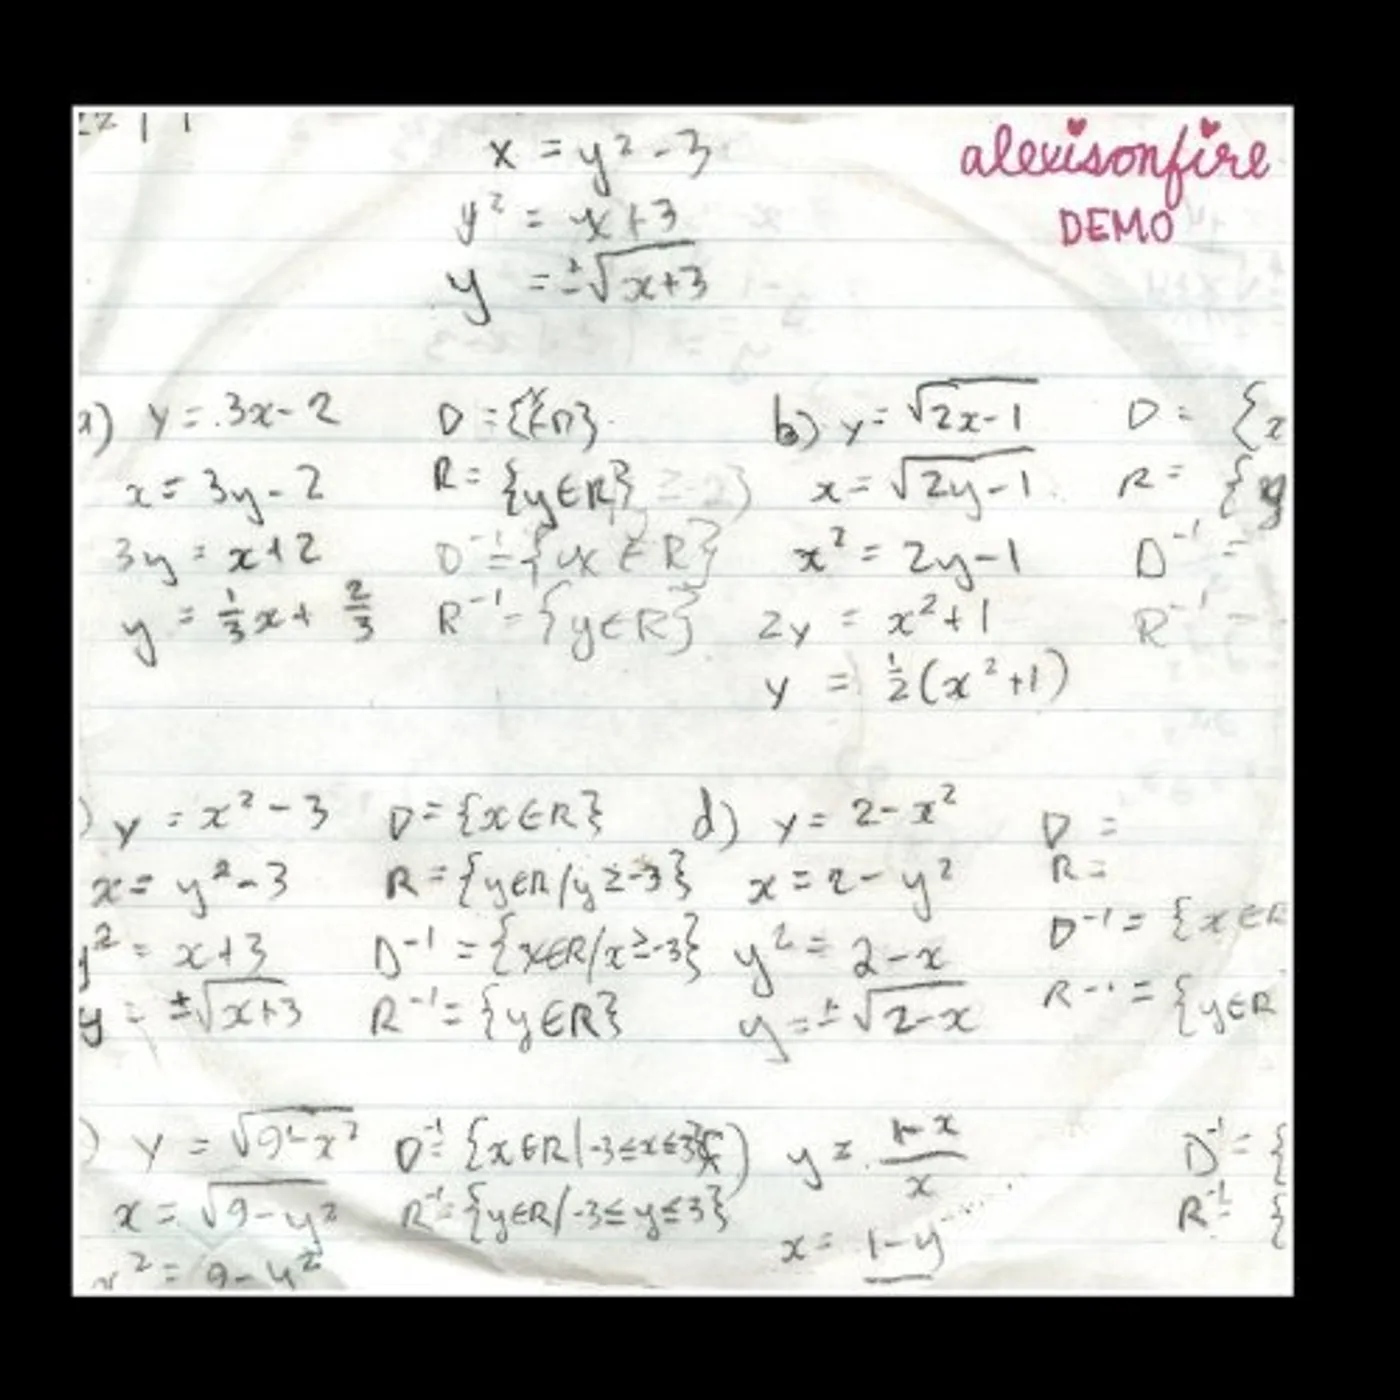 alexisonfire
DEMO
x = y² - 3
y² = x + 3
y = ±√x+3
a) y = 3x - 2
x = 3y - 2
3y = x + 2
y = 1/3 x + 2/3
R = {y∈R}
D⁻¹ = {x ∈ R}
R⁻¹ = {y∈R}
b) y = √2x-1
x = √2y-1
x² = 2y - 1
2y = x² + 1
y = 1/2 (x² + 1)
D = {x
R = {y
D⁻¹ =
R⁻¹ =
) y = x² - 3
x = y² - 3
y² = x + 3
y = ±√x+3
D = {x∈R}
R = {y∈R/y≥-3}
D⁻¹ = {x∈R/x≥-3}
R⁻¹ = {y∈R}
d) y = 2 - x²
x = 2 - y²
y² = 2 - x
y = ±√2-x
D =
R =
D⁻¹ = {x∈R
R⁻¹ = {y∈R
) y = √9-x²
x = √9-y²
x² = 9 - y²
D⁻¹ = {x∈R|-3≤x≤3}
R⁻¹ = {y∈R/-3≤y≤3}
) y = 1-x/x
x = 1-y
D⁻¹ = {
R⁻¹ = {